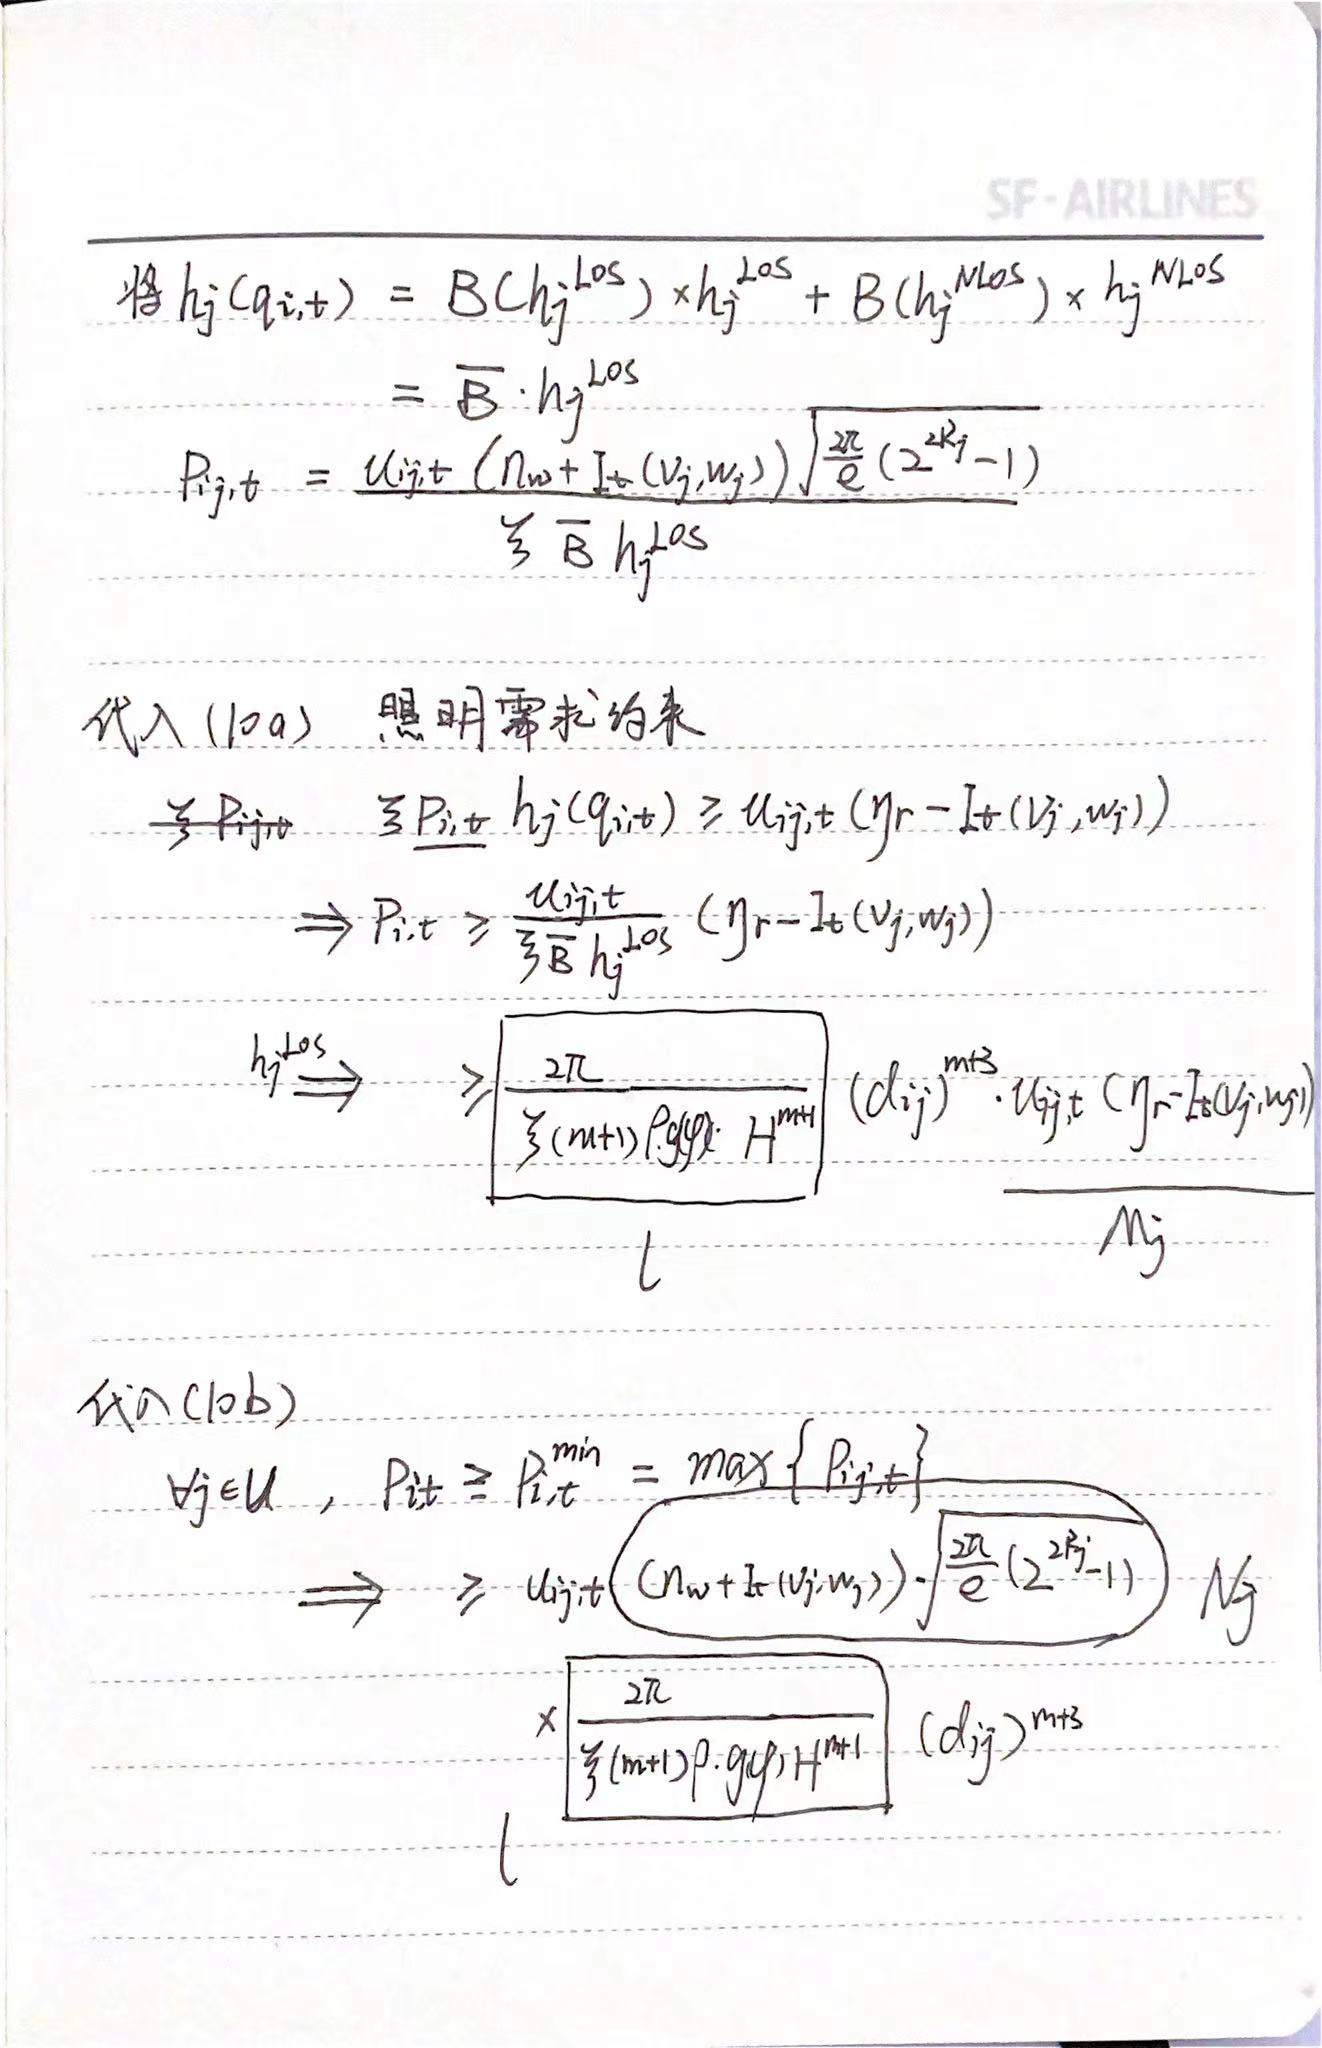 SF-AIRLINES
将 hj(qi,t) = B(hj^LOS) × hj^LOS + B(hj^NLOS) × hj^NLOS
= B̄ · hj^LOS
Pij,t = uij,t (nw + It(vj,wj)) √(2π/e (2^2Rj - 1)) / ξ B̄ hj^LOS
代入(10a) 照明需求约束
ξ Pij,t ξ Pi,t hj(qi,t) ≥ uij,t (ηr - It(vj,wj))
⇒ Pi,t ≥ uij,t / ξ B̄ hj^LOS (ηr - It(vj,wj))
hj^LOS ⇒ ≥ 2π / ξ(m+1) ρ·g(φ)· H^m+1 (dij)^m+3 · uij,t (ηr - It(vj,wj))
l Mj
代入(10b)
∀j∈U , Pi,t ≥ Pi,t^min = max{Pij,t}
⇒ ≥ uij,t (nw + It(vj,wj)) · √(2π/e (2^2Rj - 1)) Nj
× 2π / ξ(m+1) ρ·g(φ) H^m+1 (dij)^m+3
l